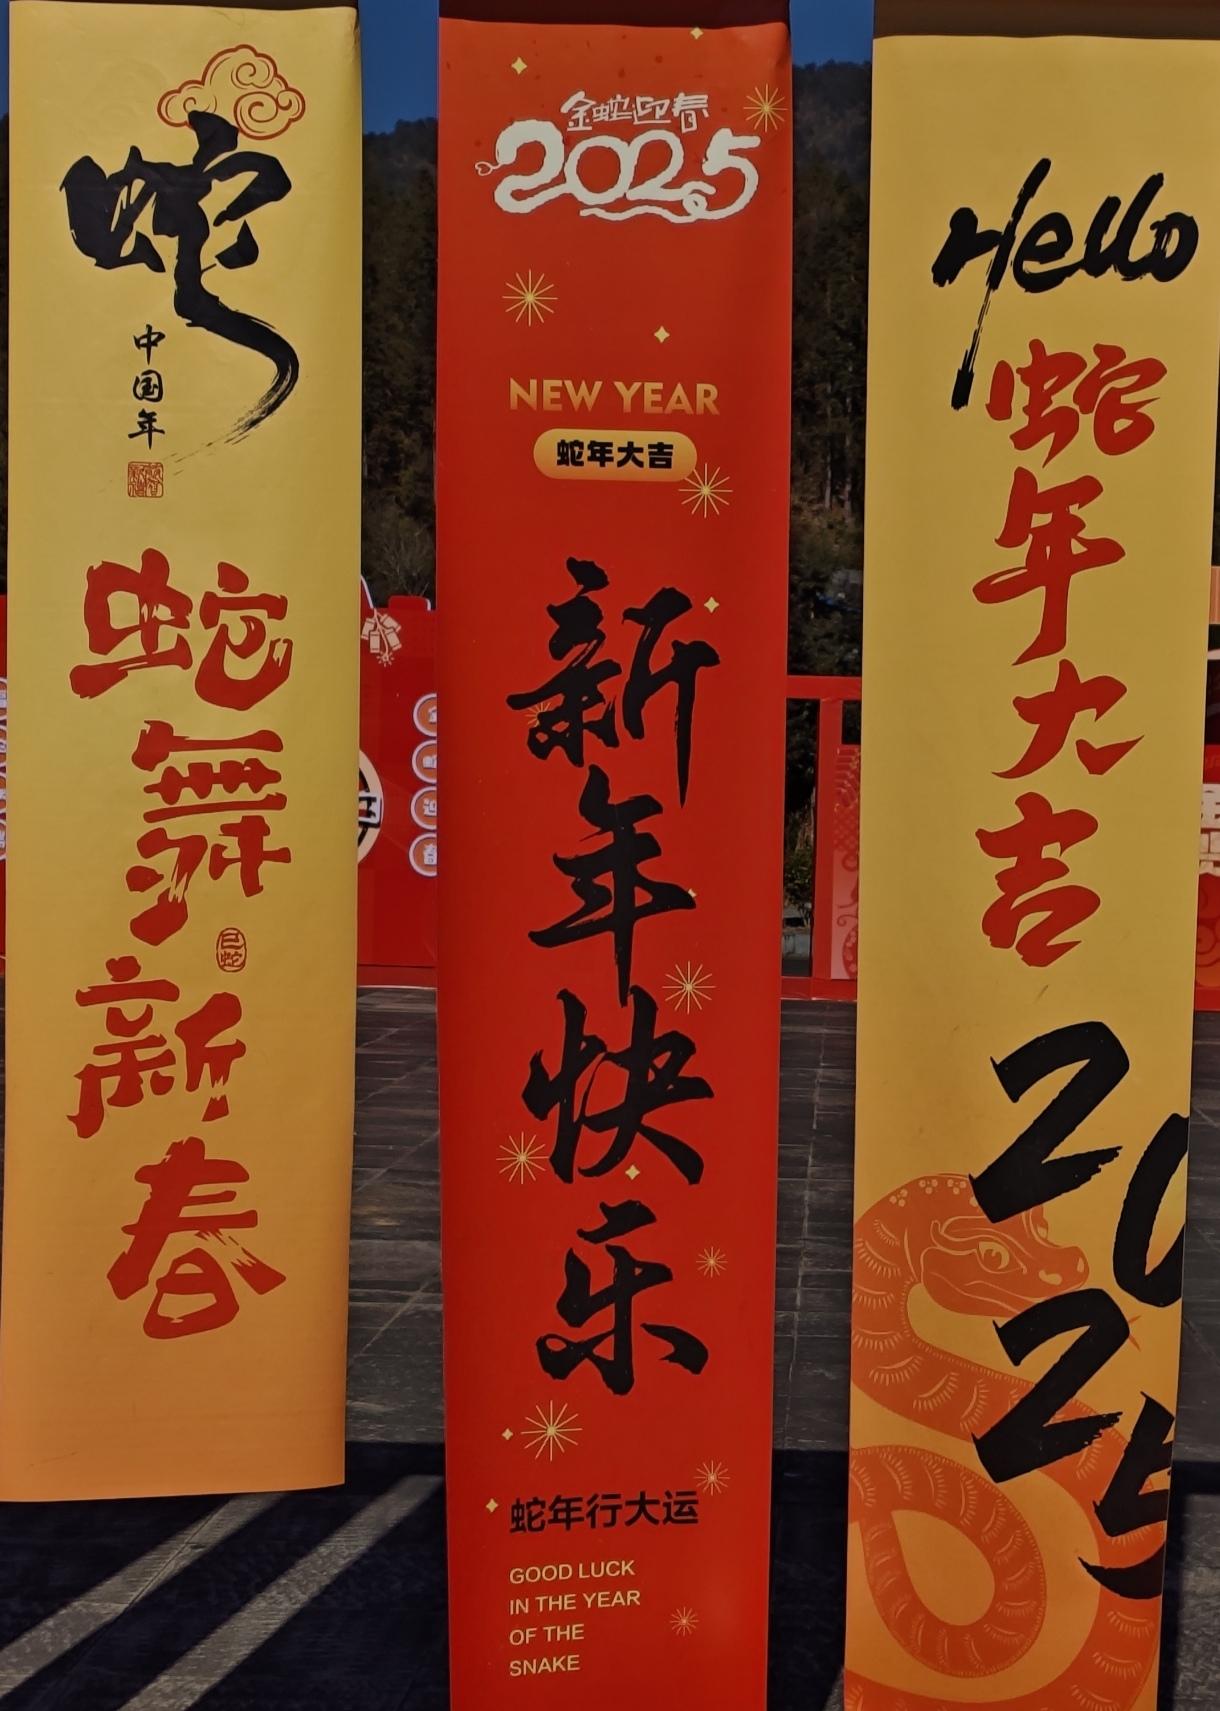 蛇
中国年
蛇舞新春
巳蛇
金蛇迎春
2025
NEW YEAR
蛇年大吉
新年快乐
蛇年行大运
GOOD LUCK
IN THE YEAR
OF THE
SNAKE
Hello
蛇年大吉
20
25